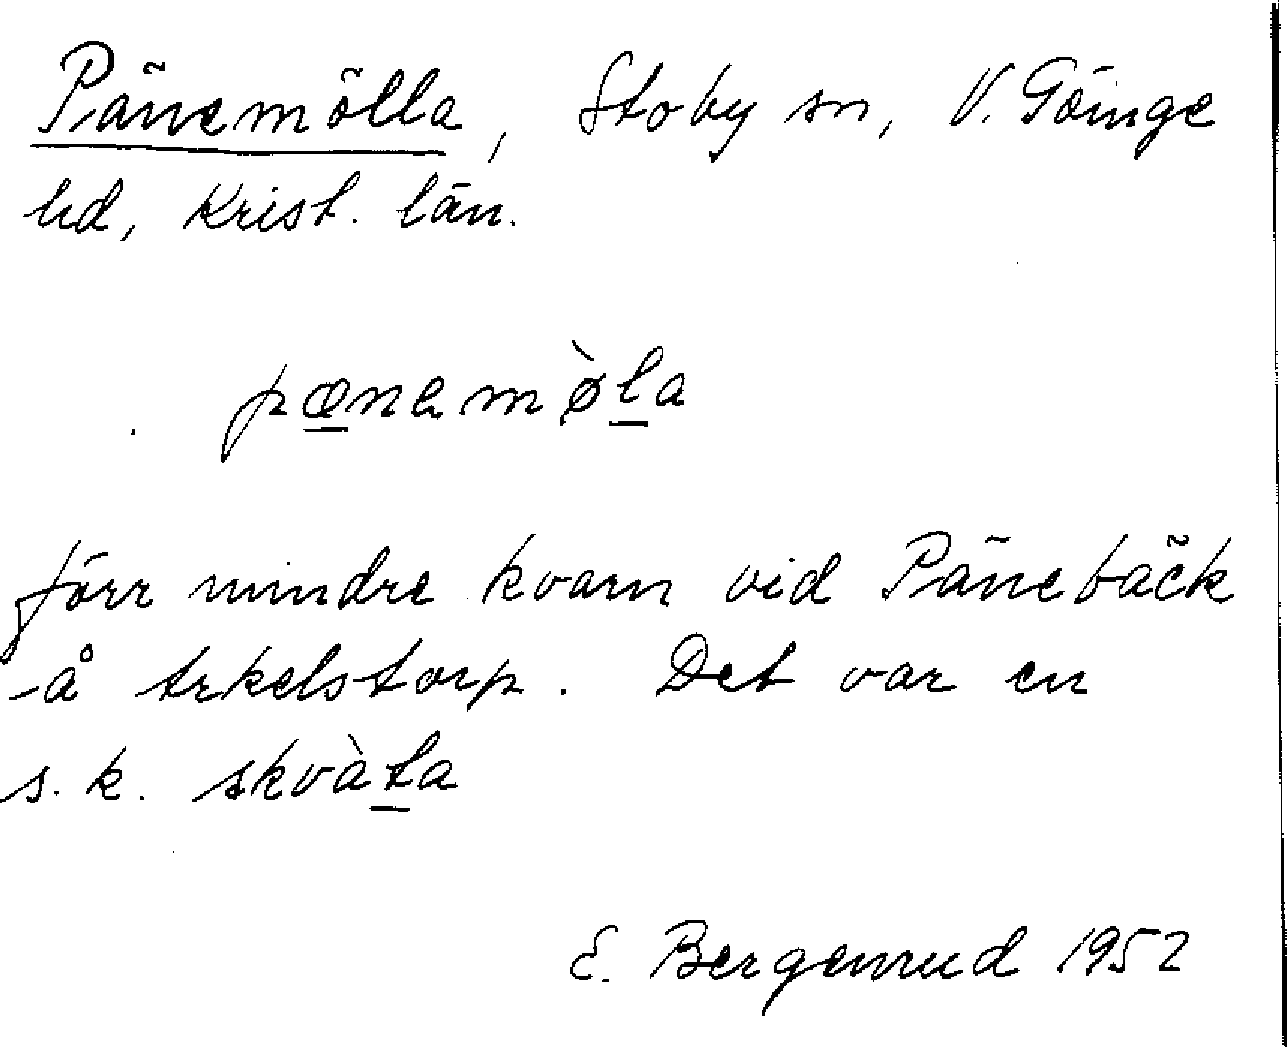 Pänemölla, Stoby sn, V. Göinge
hd, Krist. län.
pænamø̀la
förr mindre kvarn vid Pänebäck
-å Erkelstorp. Det var en
s. k. skvàta
E. Bergenrud 1952